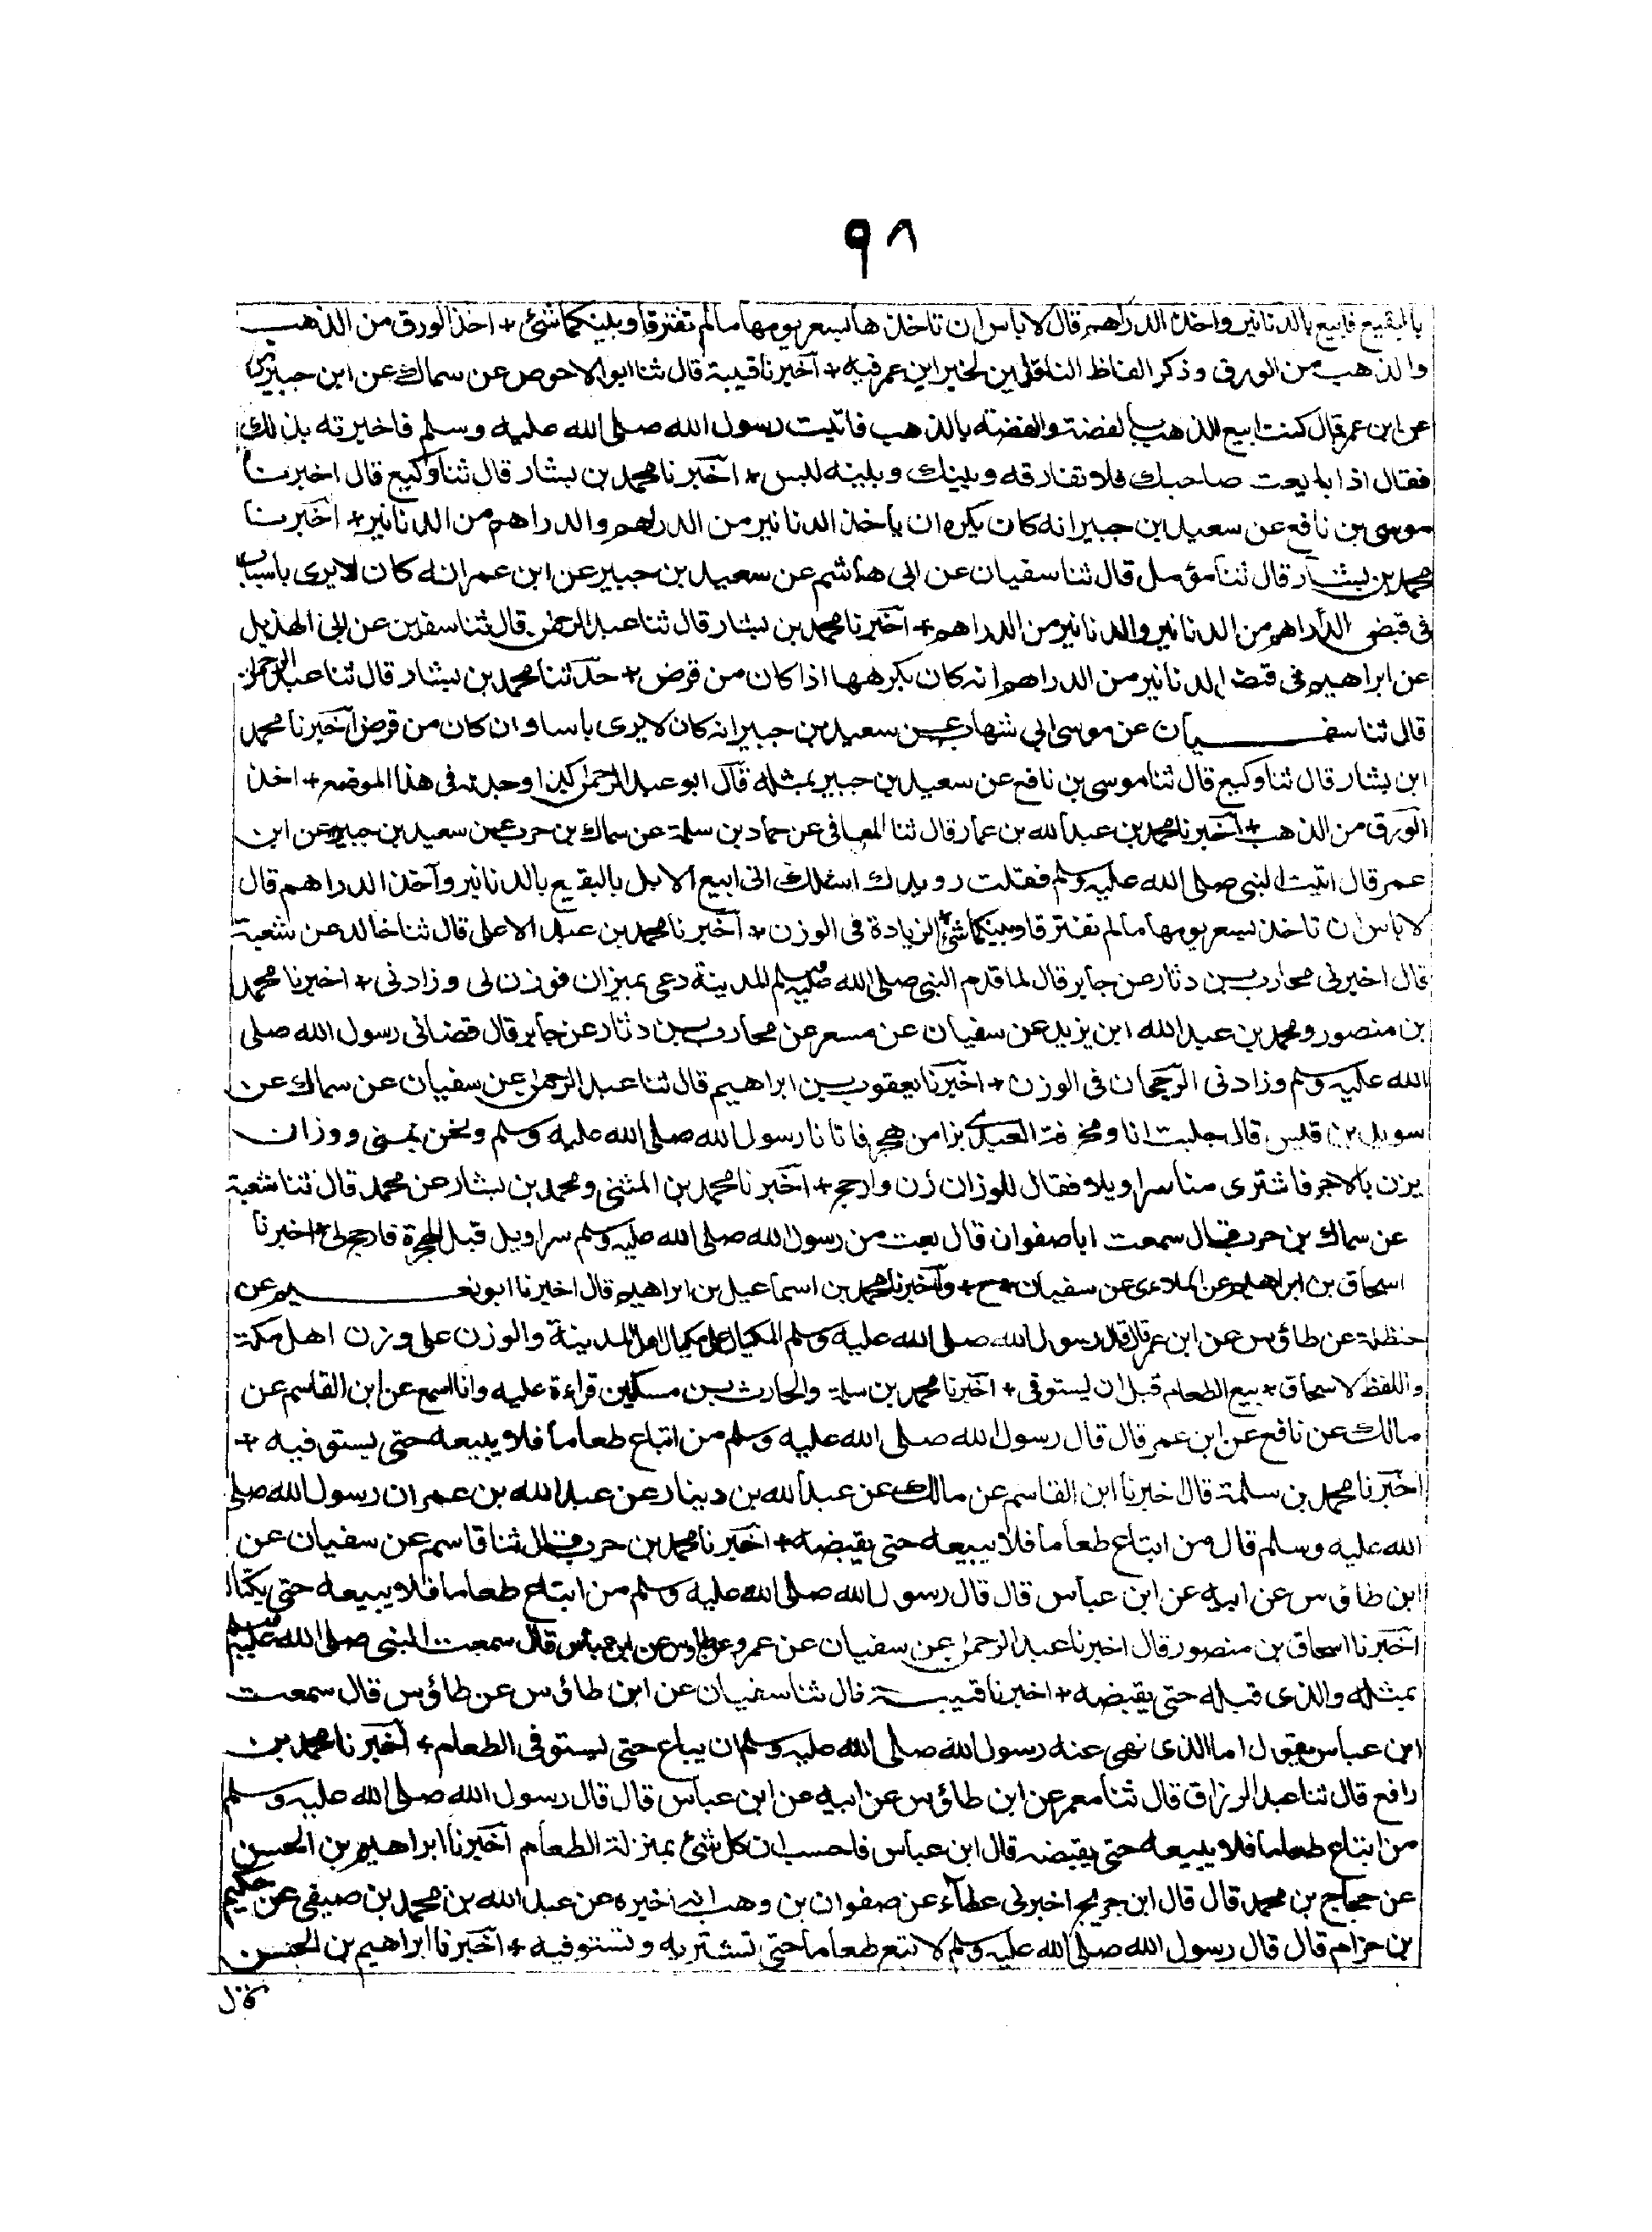 ٩٨
بالبقيع فابيع بالدنانير واخذ الدراهم قال لا باس ان تاخذ ها بسعر يومها ما لم تفترقا وبينكما شئ + اخذ الورق من الذهب
والذهب من الورق وذكر الفاظ الناقلين لخبر ابن عمر فيه + آخبرنا قتيبة قال ثنا ابو الاحوص عن سماك عن ابن جبير
عن ابن عمر قال كنت ابيع الذهب بالفضة والفضة بالذهب فاتيت رسول الله صلى الله عليه وسلم فاخبرته بذلك
فقال اذا بايعت صاحبك فلا تفارقه وبينك وبينه لبس + آخبرنا محمد بن بشار قال ثنا وكيع قال اخبرنا
موسى بن نافع عن سعيد بن جبير انه كان يكره ان ياخذ الدنانير من الدراهم والدراهم من الدنانير + اخبرنا
محمد بن بشار قال ثنا مؤمل قال ثنا سفيان عن ابى هاشم عن سعيد بن جبير عن ابن عمر انه كان لا يرى باسا
فى قبض الدراهم من الدنانير والدنانير من الدراهم + آخبرنا محمد بن بشار قال ثنا عبد الرحمن قال ثنا سفين عن ابى الهذيل
عن ابراهيم فى قبض الدنانير من الدراهم انه كان يكرهها اذا كان من قرض + حدثنا محمد بن بشار قال ثنا عبد الرحمن
قال ثنا سفيان عن موسى ابي شهاب عن سعيد بن جبير انه كان لا يرى باسا وان كان من قرض آخبرنا محمد
ابن بشار قال ثنا وكيع قال ثنا موسى بن نافع عن سعيد بن جبير بمثله قال ابو عبد الرحمن كذا وجدته فى هذا الموضع + اخذ
الورق من الذهب + آخبرنا محمد بن عبد الله بن عمار قال ثنا المعافى عن حماد بن سلمة عن سماك بن حرب عن سعيد بن جبير عن ابن
عمر قال اتيت النبى صلى الله عليه وسلم فقلت رويدك اسئلك انى ابيع الابل بالبقيع بالدنانير وآخذ الدراهم قال
لا باس ان تاخذ بسعر يومها ما لم تفترقا وبينكما شئ + الزيادة فى الوزن + آخبرنا محمد بن عبد الاعلى قال ثنا خالد عن شعبة
قال اخبرنى محارب بن دثار عن جابر قال لما قدم النبى صلى الله عليه وسلم المدينة دعى بميزان فوزن لى وزادنى + اخبرنا محمد
بن منصور ومحمد بن عبد الله ابن يزيد عن سفيان عن مسعر عن محارب بن دثار عن جابر قال قضانى رسول الله صلى
الله عليه وسلم وزادنى الرجحان فى الوزن + اخبرنا يعقوب بن ابراهيم قال ثنا عبد الرحمن عن سفيان عن سماك عن
سويد بن قيس قال جلبت انا ومخرفة العبدى بزا من هجر فاتانا رسول الله صلى الله عليه وسلم ونحن بمنى ووزان
يزن بالاجر فاشترى منا سراويلا فقال للوزان زن وارجح + آخبرنا محمد بن المثنى ومحمد بن بشار عن محمد قال ثنا شعبة
عن سماك بن حرب قال سمعت ابا صفوان قال بعت من رسول الله صلى الله عليه وسلم سراويل قبل الهجرة فارجح لى + اخبرنا
اسحاق بن ابراهيم عن الملاءى عن سفيان + ح + وآخبرنا محمد بن اسماعيل بن ابراهيم قال اخبرنا ابو نعيم عن
حنظلة عن طاؤس عن ابن عمر قال قال رسول الله صلى الله عليه وسلم المكيال على مكيال اهل المدينة والوزن على وزن اهل مكة
واللفظ لاسحاق + بيع الطعام قبل ان يستوفى + اخبرنا محمد بن سلمة والحارث بن مسكين قراءة عليه وانا اسمع عن ابن القاسم عن
مالك عن نافع عن ابن عمر قال قال رسول الله صلى الله عليه وسلم من ابتاع طعاما فلا يبيعه حتى يستوفيه +
اخبرنا محمد بن سلمة قال اخبرنا ابن القاسم عن مالك عن عبد الله بن دينار عن عبد الله بن عمر ان رسول الله صلى
الله عليه وسلم قال من ابتاع طعاما فلا يبيعه حتى يقبضه + اخبرنا محمد بن حرب قال ثنا قاسم عن سفيان عن
ابن طاؤس عن ابيه عن ابن عباس قال قال رسول الله صلى الله عليه وسلم من ابتاع طعاما فلا يبيعه حتى يكتال
اخبرنا اسحاق بن منصور قال اخبرنا عبد الرحمن عن سفيان عن عمرو عن طاؤس عن ابن عباس قال سمعت النبى صلى الله عليه وسلم
بمثله والذى قبله حتى يقبضه + اخبرنا قتيبة قال ثنا سفيان عن ابن طاؤس عن طاؤس قال سمعت
ابن عباس يقول اما الذى نهى عنه رسول الله صلى الله عليه وسلم ان يباع حتى يستوفى الطعام + آخبرنا محمد بن
رافع قال ثنا عبد الرزاق قال ثنا معمر عن ابن طاؤس عن ابيه عن ابن عباس قال قال رسول الله صلى الله عليه وسلم
من ابتاع طعاما فلا يبيعه حتى يقبضه قال ابن عباس فاحسب ان كل شئ بمنزلة الطعام آخبرنا ابراهيم بن الحسن
عن حجاج بن محمد قال قال ابن جريج اخبرنى عطاء عن صفوان بن وهب انه اخبره عن عبد الله بن محمد بن صيفى عن حكيم
بن حزام قال قال رسول الله صلى الله عليه وسلم لا تبع طعاما حتى تشتريه وتستوفيه + آخبرنا ابراهيم بن الحسن